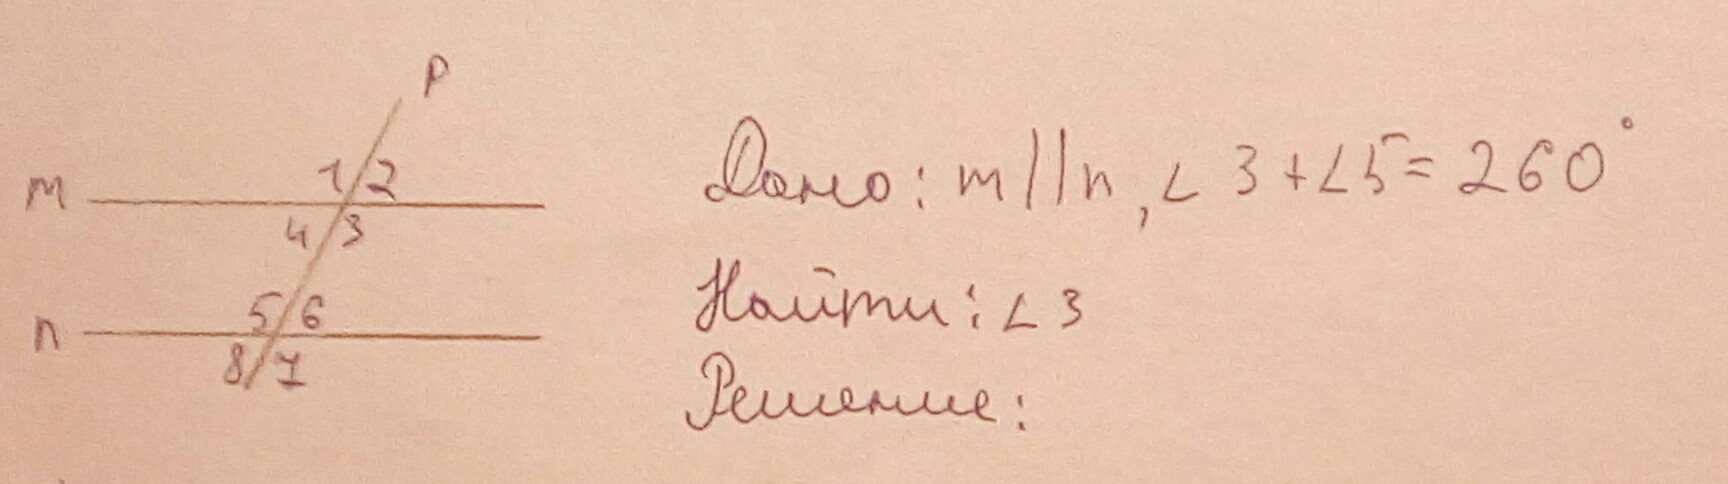 p
m 1 2
4 3
n 5 6
8 7
Дано: m||n, ∠3+∠5=260°
Найти: ∠3
Решение: